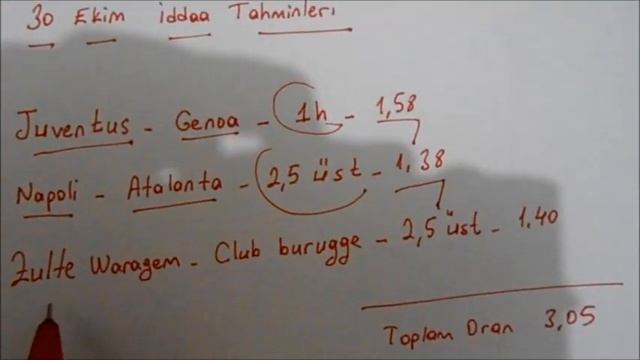 30 Ekim iddaa Tahminleri
Juventus - Genoa - 1h - 1,58
Napoli - Atalanta - 2,5 üst - 1,38
Zulte Waragem - Club burugge - 2,5 üst - 1.40
Toplam Oran 3,05